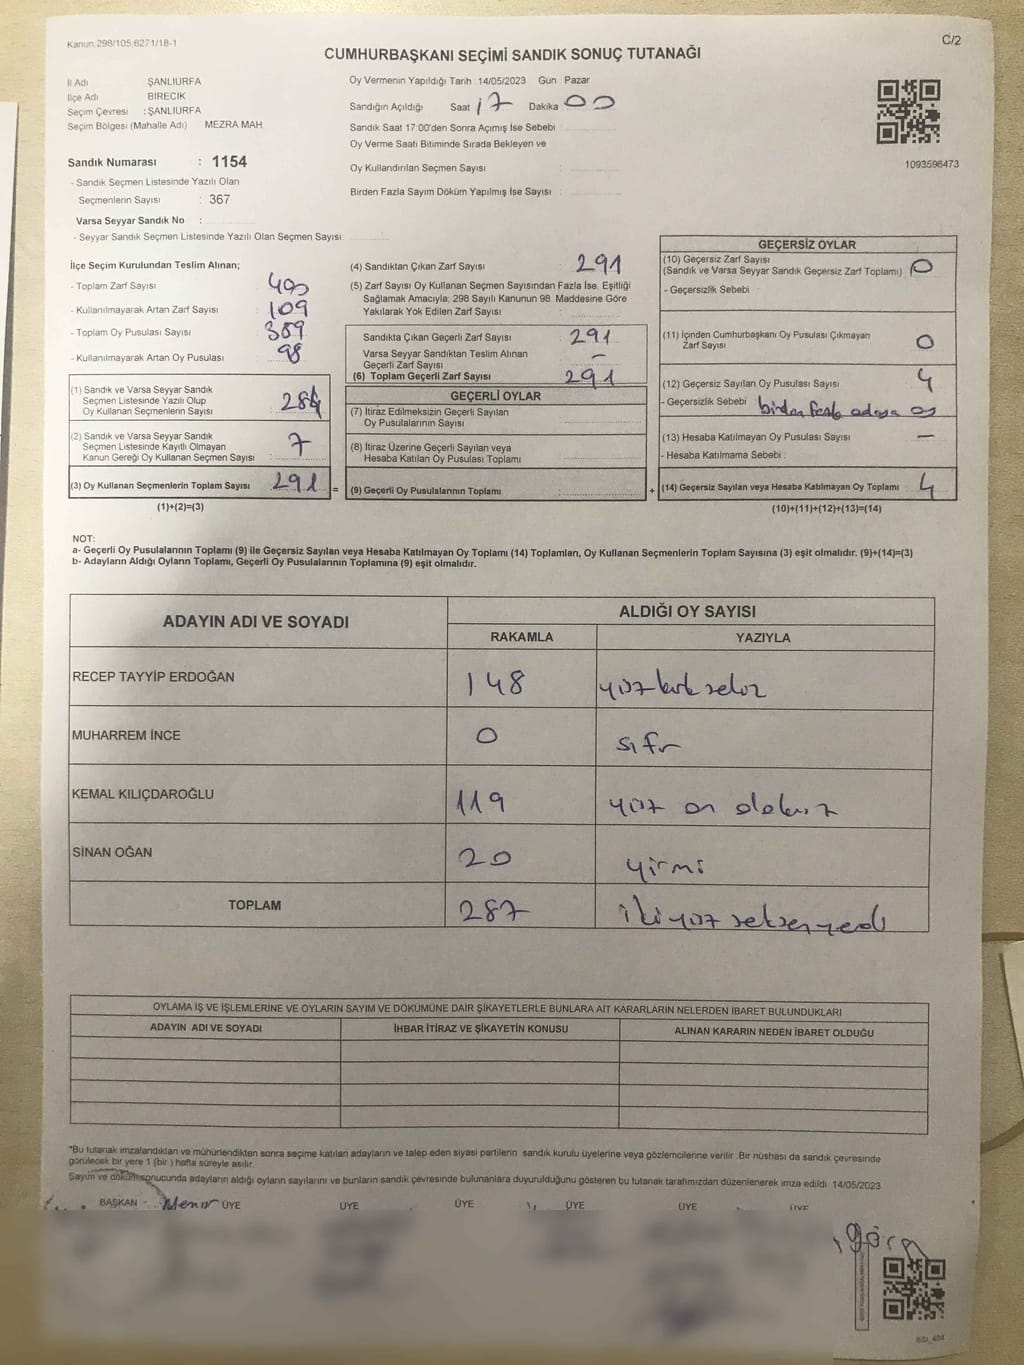 Kanun.298/105,6271/18-1
C/2
CUMHURBAŞKANI SEÇİMİ SANDIK SONUÇ TUTANAĞI
İl Adı ŞANLIURFA
İlçe Adı BİRECİK
Seçim Çevresi : ŞANLIURFA
Seçim Bölgesi (Mahalle Adı) MEZRA MAH
Sandık Numarası : 1154
- Sandık Seçmen Listesinde Yazılı Olan
Seçmenlerin Sayısı : 367
Varsa Seyyar Sandık No :
- Seyyar Sandık Seçmen Listesinde Yazılı Olan Seçmen Sayısı:
Oy Vermenin Yapıldığı Tarih 14/05/2023 Gün Pazar
Sandığın Açıldığı Saat 17 Dakika 00
Sandık Saat 17:00'den Sonra Açımış İse Sebebi :
Oy Verme Saati Bitiminde Sırada Bekleyen ve
Oy Kullandırılan Seçmen Sayısı :
Birden Fazla Sayım Döküm Yapılmış İse Sayısı :
1093596473
İlçe Seçim Kurulundan Teslim Alınan;
- Toplam Zarf Sayısı : 400
- Kullanılmayarak Artan Zarf Sayısı : 109
- Toplam Oy Pusulası Sayısı : 389
- Kullanılmayarak Artan Oy Pusulası : 98
(1) Sandık ve Varsa Seyyar Sandık
Seçmen Listesinde Yazılı Olup
Oy Kullanan Seçmenlerin Sayısı : 284
(2) Sandık ve Varsa Seyyar Sandık
Seçmen Listesinde Kayıtlı Olmayan
Kanun Gereği Oy Kullanan Seçmen Sayısı : 7
(3) Oy Kullanan Seçmenlerin Toplam Sayısı : 291
(1)+(2)=(3)
(4) Sandıktan Çıkan Zarf Sayısı : 291
(5) Zarf Sayısı Oy Kullanan Seçmen Sayısından Fazla İse, Eşitliği
Sağlamak Amacıyla; 298 Sayılı Kanunun 98. Maddesine Göre
Yakılarak Yok Edilen Zarf Sayısı :
Sandıkta Çıkan Geçerli Zarf Sayısı : 291
Varsa Seyyar Sandıktan Teslim Alınan
Geçerli Zarf Sayısı : –
(6) Toplam Geçerli Zarf Sayısı : 291
GEÇERLİ OYLAR
(7) İtiraz Edilmeksizin Geçerli Sayılan
Oy Pusulalarının Sayısı :
(8) İtiraz Üzerine Geçerli Sayılan veya
Hesaba Katılan Oy Pusulası Toplamı :
= (9) Geçerli Oy Pusulalarının Toplamı :
GEÇERSİZ OYLAR
(10) Geçersiz Zarf Sayısı
(Sandık ve Varsa Seyyar Sandık Geçersiz Zarf Toplamı) : 0
- Geçersizlik Sebebi :
(11) İçinden Cumhurbaşkanı Oy Pusulası Çıkmayan
Zarf Sayısı : 0
(12) Geçersiz Sayılan Oy Pusulası Sayısı : 4
- Geçersizlik Sebebi : birden fazla adaya oy
(13) Hesaba Katılmayan Oy Pusulası Sayısı : –
- Hesaba Katılmama Sebebi :
+ (14) Geçersiz Sayılan veya Hesaba Katılmayan Oy Toplamı : 4
(10)+(11)+(12)+(13)=(14)
NOT:
a- Geçerli Oy Pusulalarının Toplamı (9) ile Geçersiz Sayılan veya Hesaba Katılmayan Oy Toplamı (14) Toplamları, Oy Kullanan Seçmenlerin Toplam Sayısına (3) eşit olmalıdır. (9)+(14)=(3)
b- Adayların Aldığı Oyların Toplamı, Geçerli Oy Pusulalarının Toplamına (9) eşit olmalıdır.
ADAYIN ADI VE SOYADI ALDIĞI OY SAYISI
RAKAMLA YAZIYLA
RECEP TAYYİP ERDOĞAN 148 yüz kırk sekiz
MUHARREM İNCE 0 sıfır
KEMAL KILIÇDAROĞLU 119 yüz on dokuz
SİNAN OĞAN 20 yirmi
TOPLAM 287 iki yüz seksen yedi
OYLAMA İŞ VE İŞLEMLERİNE VE OYLARIN SAYIM VE DÖKÜMÜNE DAİR ŞİKAYETLERLE BUNLARA AİT KARARLARIN NELERDEN İBARET BULUNDUKLARI
ADAYIN ADI VE SOYADI İHBAR İTİRAZ VE ŞİKAYETİN KONUSU ALINAN KARARIN NEDEN İBARET OLDUĞU
*Bu tutanak imzalandıktan ve mühürlendikten sonra seçime katılan adayların ve talep eden siyasi partilerin sandık kurulu üyelerine veya gözlemcilerine verilir .Bir nüshası da sandık çevresinde
görülecek bir yere 1 (bir ) hafta süreyle asılır.
Sayım ve döküm sonucunda adayların aldığı oyların sayılarını ve bunların sandık çevresinde bulunanlara duyurulduğunu gösteren bu tutanak tarafımızdan düzenlenerek imza edildi 14/05/2023
BAŞKAN ÜYE ÜYE ÜYE ÜYE ÜYE ÜYE